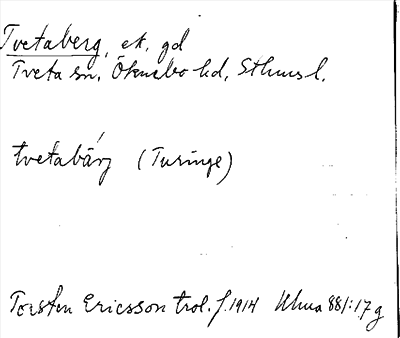 Tvetaberg, ek. gd
Tveta sn, Öknebo hd, Sthms l.
tvetabärj (Turinge)
Torsten Ericsson trol. f. 1914 Ulma 881:17 g